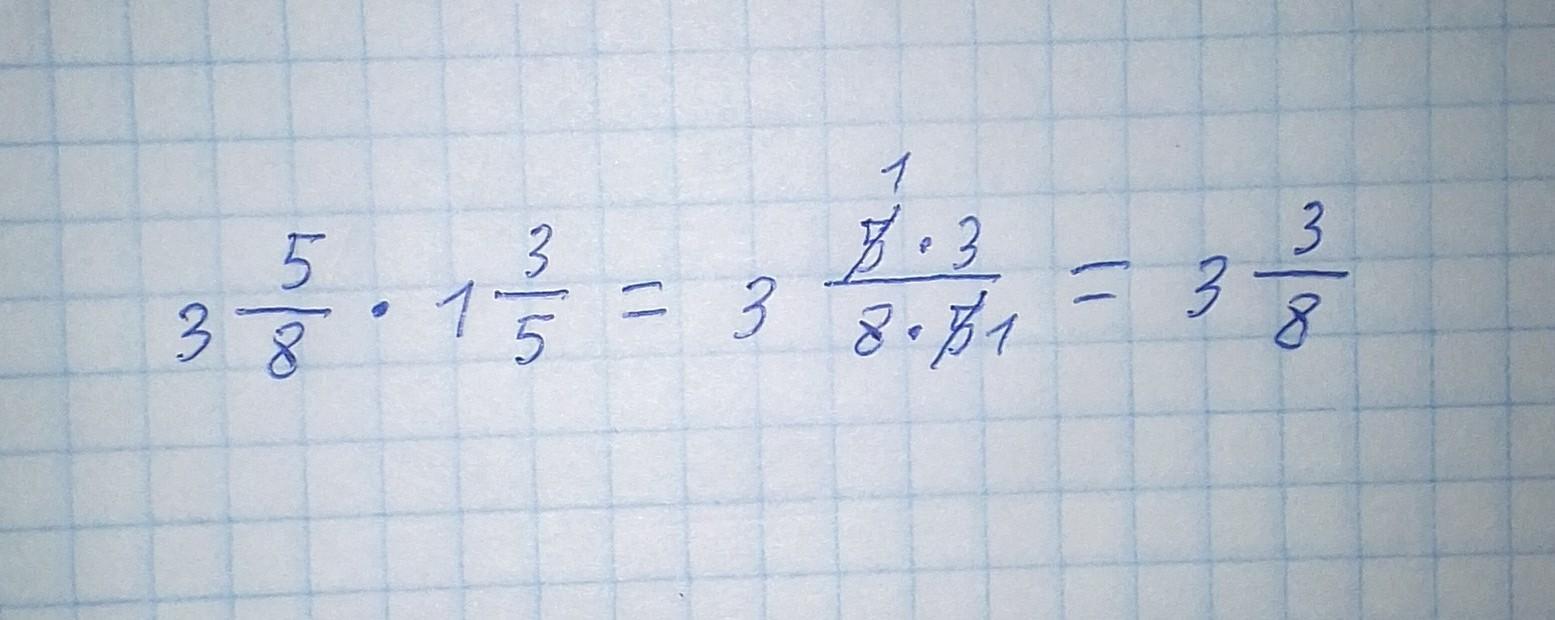 3 5/8 · 1 3/5 = 3 5̸¹ · 3 / 8 · 5̸ 1 = 3 3/8